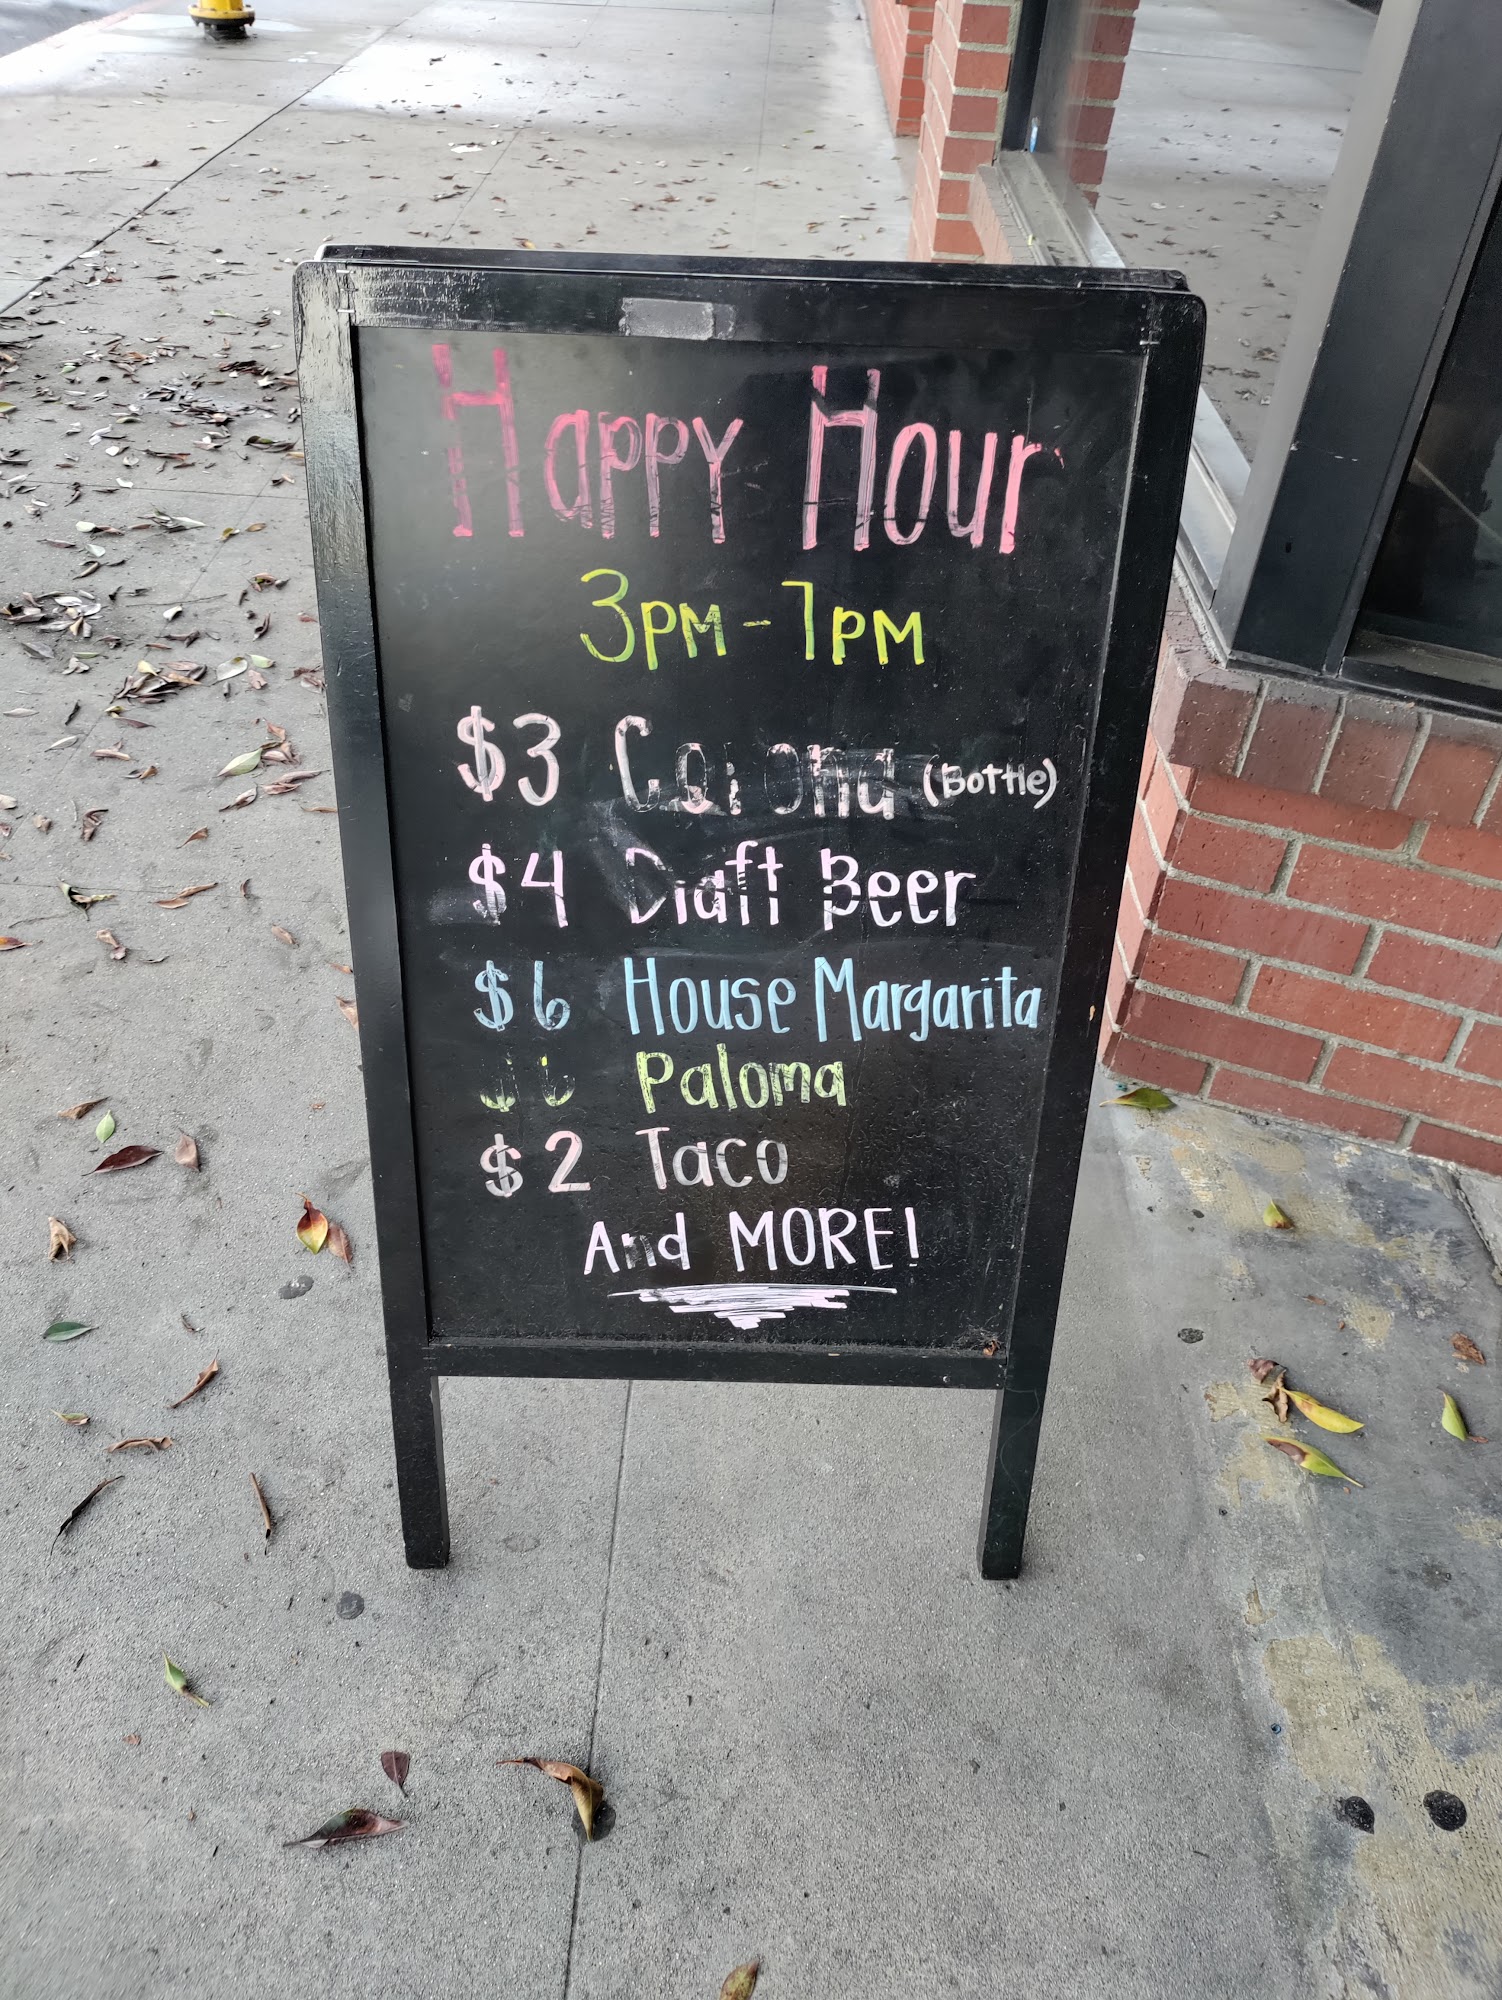 Happy Hour
3PM - 7PM
$3 Corona (Bottle)
$4 Draft Beer
$6 House Margarita
Paloma
$2 Taco
And MORE!